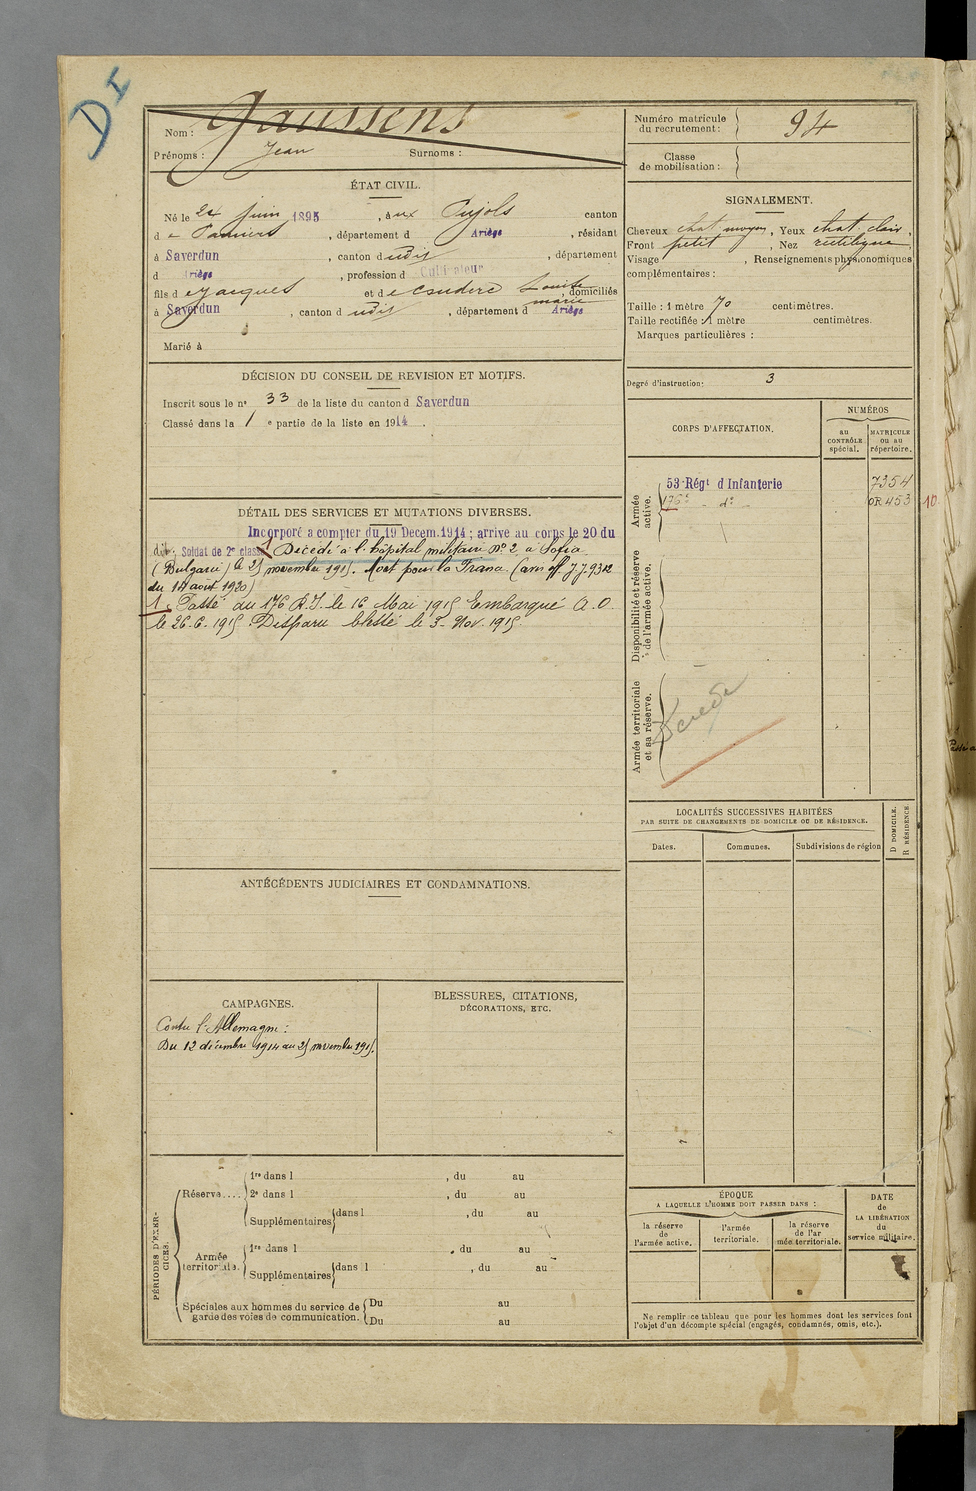 DI
Nom : Gaussens
Prénoms : Jean Surnoms :
Numéro matricule du recrutement : 94
Classe de mobilisation :
ÉTAT CIVIL.
Né le 24 juin 1895, à ux Pujols canton
d e Pamiers, département d Ariège, résidant
à Saverdun, canton d udit, département
d Ariège, profession d Cultivateur
fils d e Jacques et d e Couderc Louise marie, domiciliés
à Saverdun, canton d udit, département d Ariège
Marié à
SIGNALEMENT.
Cheveux chat moyen, Yeux chat clair,
Front petit, Nez rectiligne
Visage , Renseignements physionomiques
complémentaires :
Taille : 1 mètre 70 centimètres.
Taille rectifiée : 1 mètre centimètres.
Marques particulières :
Degré d'instruction : 3
DÉCISION DU CONSEIL DE REVISION ET MOTIFS.
Inscrit sous le n° 33 de la liste du canton d Saverdun
Classé dans la 1 e partie de la liste en 1914.
DÉTAIL DES SERVICES ET MUTATIONS DIVERSES.
Incorporé a compter du 19 Decem. 1914 ; arrive au corps le 20 du
dit. Soldat de 2e classe 1 Décédé à l'hôpital militaire n° 2 à Sofia
(Bulgarie) le 25 novembre 1915. Mort pour la France (avis off
du 18 août 1920)
1. Passé au 176 R.I. le 16 Mai 1915 Embarqué A.O.
le 26.6.1915. Disparu blessé le 3 Nov. 1915.
CORPS D'AFFECTATION.
NUMÉROS
au CONTRÔLE spécial.
MATRICULE ou au répertoire.
Armée active.
53e Régt d'Infanterie 7354
176e d° OR 453 10
Disponibilité et réserve de l'armée active.
Armée territoriale et sa réserve.
Décédé
LOCALITÉS SUCCESSIVES HABITÉES
PAR SUITE DE CHANGEMENTS DE DOMICILE OU DE RÉSIDENCE.
D DOMICILE.
R RÉSIDENCE.
Dates. Communes. Subdivisions de région
ANTÉCÉDENTS JUDICIAIRES ET CONDAMNATIONS.
CAMPAGNES.
Contre l'Allemagne :
Du 12 décembre 1914 au 25 novembre 1915.
BLESSURES, CITATIONS,
DÉCORATIONS, ETC.
PÉRIODES D'EXERCICES.
Réserve.... 1re dans l , du au
2e dans l , du au
Supplémentaires dans l , du au
Armée territoriale. 1re dans l , du au
Supplémentaires dans l , du au
Spéciales aux hommes du service de garde des voies de communication. Du au
Du au
ÉPOQUE
A LAQUELLE L'HOMME DOIT PASSER DANS :
la réserve de l'armée active.
l'armée territoriale.
la réserve de l'armée territoriale.
DATE de LA LIBÉRATION du service militaire.
Ne remplir ce tableau que pour les hommes dont les services font
l'objet d'un décompte spécial (engagés, condamnés, omis, etc.).